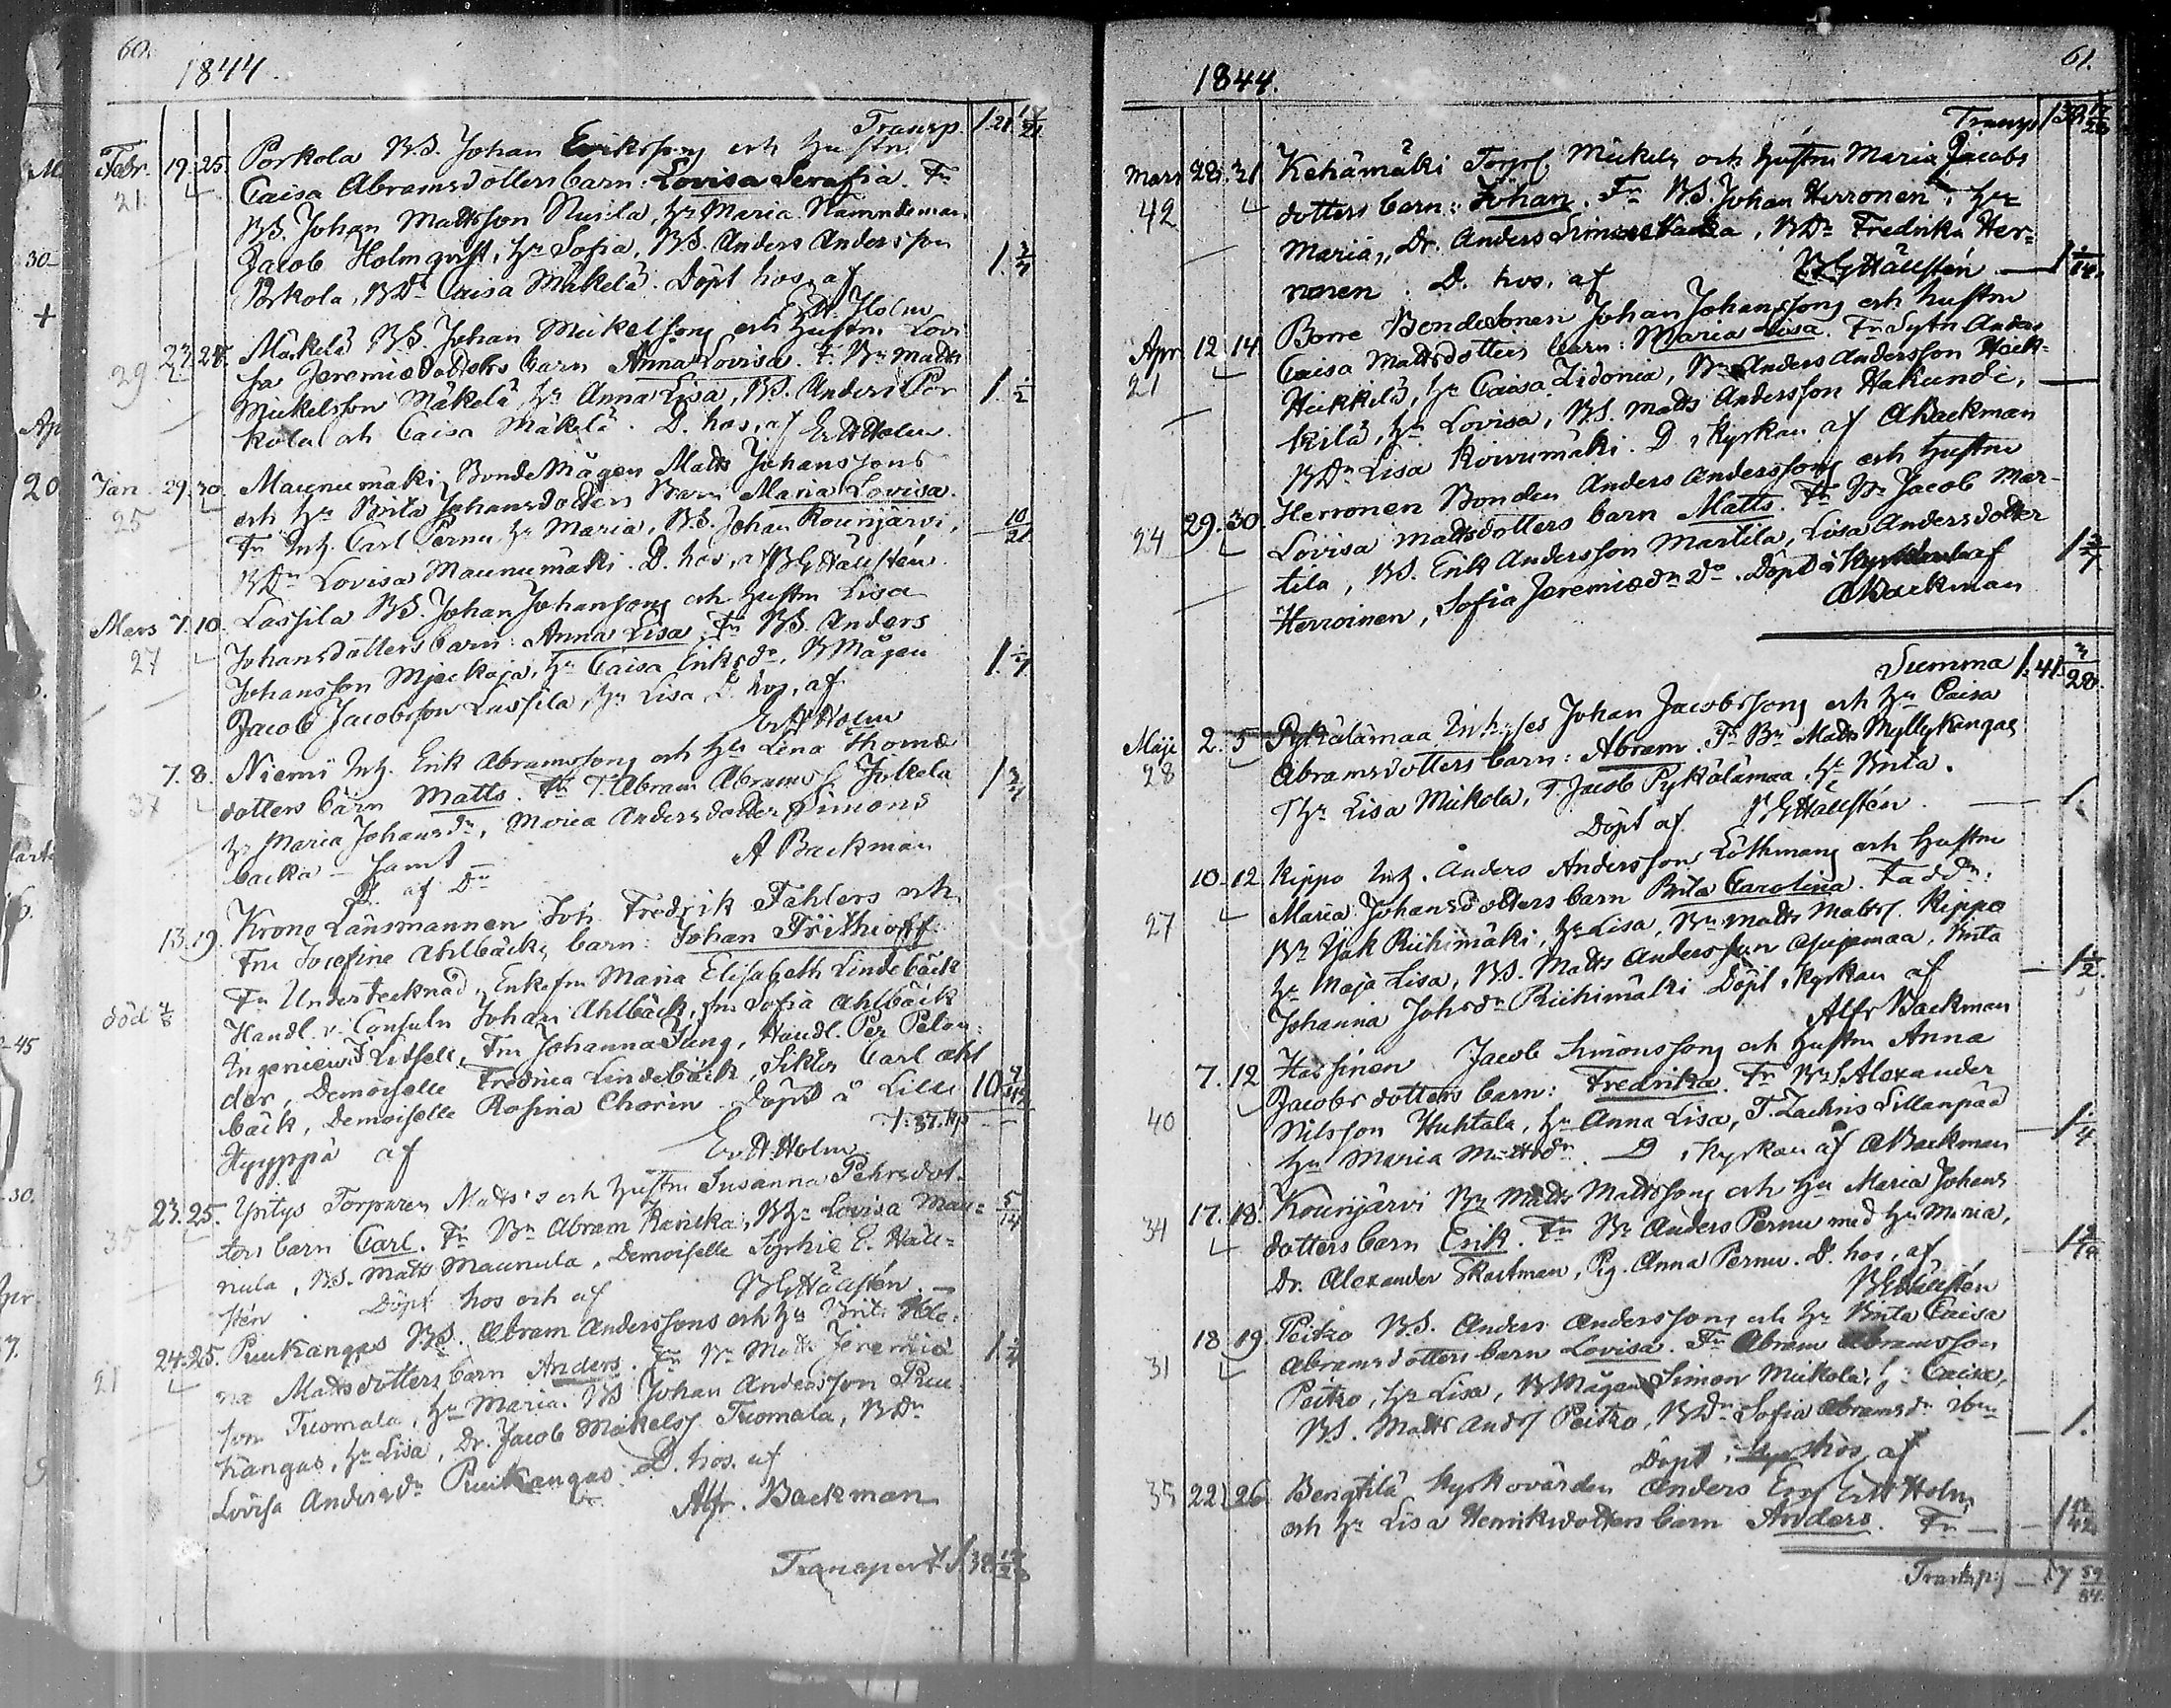 60.
1844.
Transp. 1.21 17/21
Febr. 19. 25. Porkola B.S. Johan Erikssons och Hustru
21. Caisa Abramsdotters barn: Lovisa Serafia. Fr
BS. Johan Mattsson Nusila, Hu Maria. Nämndeman
Jacob Holmqvist, Hu Sofia, BS. Anders Andersson
Porkola, BDr Caisa Mäkelä. Döpt hos, af
Er. A. Holm
27. 28. Mäkelä BS. Johan Mickelssons och Hustru Lovi-
29. sa Jeremiædotters barn Anna Lovisa. Fr. Bn Matts
Mickelsson Mäkelä Hu Anna Lisa, BS. Anders Por 1. 1/2
kola och Caisa Mäkelä. D. hos, af Er A Holm.
Jan. 29. 30. Maunumäki BondeMågen Matts Johanssons
25 och Hu Brita Johansdotters Barn Maria Lovisa.
Fr Inh. Carl Pernu Hu Maria, B.S. Johan Kounjärvi, 10/21
BDr Lovisa Maunumäki. D. hos, af BGHällstén.
Mars 7. 10. Lassila BS. Johan Johanssons och Hustru Lisa
27 Johansdotters barn: Anna Lisa. Fr BS. Anders
Johansson Mjeckoja, Hu Caisa Eriksdr, BMågen
Jacob Jacobsson Lassila, Hu Lisa D. hos, af
Er A Holm
7. 8. Niemi Inh. Erik Abramssons och Hu Lena Thomæ
37 dotters barn Matts. Fr T. Abram Abramss Jolkela
Hu Maria Johansdr, Maria Andersdotter Simons
backa – samt –
D. af Dn A Backman
13. 19. Krono Länsmannen Joh. Fredrik Fahlers och
Fru Josefine Ahlbäcks barn: Johan Frithioff.
Fr Undertecknad, Enkefru Maria Elisabeth Lindebäck
död 4/8 Handl. v. Consuln Johan Ahlbäck, fru Sofia Ahlbäck
Ingenieur Litsell, Fru Johanna Jung, Handl. Per Pelon-
der, Demoiselle Fredrica Lindebäck, Sikter Carl Ahl
bäck, Demoiselle Rosina Chorin. Döpt å Lille 10
Hyyppä af Er. A. Holm
23. 25. Yritys Torparen Matts's och Hustru Susanna Pehrsdot-
35 ters barn Carl. Fr Bn Abram Ranikka, BHu Lovisa Mau- 5/14
nula, B.S. Matts Maunula, Demoiselle Sophie E. Häll-
stén. Döpt hos och af BGHällstén
24. 25. Puukangas BS. Abram Anderssons och Hu Brita Hele-
21 na Mattsdotters barn Anders. Fr Bn Matts Jeremiæ
son Tuomala, Hu Maria. BS Johan Andersson Puu-
kangas, Hu Lisa, Dr. Jacob Mickelss. Tuomala, BDr
Lovisa Andersdr Puukangas. D. hos, af
Alfr. Backman
Transport
61.
1844.
Transp.
Mars 28. 31 Kehämäki Torps Mickels och Hustru Maria Jacobs
42 dotters barn: Johan. Fr BS. Johan Herronen, Hu
Maria, Dr. Anders Simonsbacka, BDr Fredrika Her-
ronen. D. hos, af BGHällstén
Apr. 12. 14 Borre BondeSonen Johan Johanssons och Hustru
21 Caisa Mattsdotters barn: Maria Lisa. Fr Sytn Anders
Heikkilä, Hu Caisa Zidonia, Bn Anders Andersson Heik-
kilä, Hu Lovisa, BS. Matts Andersson Hakundi,
BDr Lisa Koivumäki. D i kyrkan af ABackman
29. 30. Herronen Bonden Anders Anderssons och Hustru
24 Lovisa Mattsdotters barn Matts. Fr Bn Jacob Mar-
tila, BS. Erik Andersson Martila, Lisa Andersdotter
Herroinen, Sofia Jeremiædr Do. Döpt i kyrkan af
ABackman
Summa
Maji 2. 5 Pykälämaa Inhyses Johan Jacobssons och Hu Caisa
28 Abramsdotters barn: Abram. Fr Bn Matts Myllykangas
T Hu Lisa Mickola, T. Jacob Pykälämaa, Hu Brita.
Döpt af BGHällstén. 1.
10. 12. Rippo Inh. Anders Andersson Löthmans och Hustru
27 Maria Johansdotters barn Brita Carolina. Faddr:
Bn Isak Riihimäki, Hu Lisa, Bn Matts Matts. Rippo
Hu Maja Lisa, BS. Matts Andersson Ojajamaa, Brita 1/2.
Johanna Johsdr Riihimäki Döpt i kyrkan af
Alfr Backman
7. 12 Hassinen Jacob Simonssons och Hustru Anna
40 Jacobsdotters barn: Fredrika. Fr BS Alexander
Nilsson Huhtala, Hu Anna Lisa, T. Zachris Sillanpää
Hu Maria Mattsdr. D i kyrkan af ABackman
17. 18. Kounjärvi Bn Matts Mattssons och Hu Maria Johans
34 dotters barn Erik. Fr Bn Anders Pernu med Hu Maria,
Dr. Alexander Skartman, Pig. Anna Pernu. D. hos, af
BGHällstén
18 19. Peitzo B.S. Anders Anderssons och Hu Brita Caisa
31 Abramsdotters barn Lovisa. Fr Abram Abramsson
Peitzo, Hu Lisa, BMågen Simon Mickola, Hu Caisa,
BS. Matts Ands Peitzo, BDr Sofia Abramsdr ibm 1.
Döpt hos, af
35 22. 26. Bengtilä kyrkovärden Anders Er A Holm
och Hu Lisa Henriksdotters barn Anders. Fr
Transp: